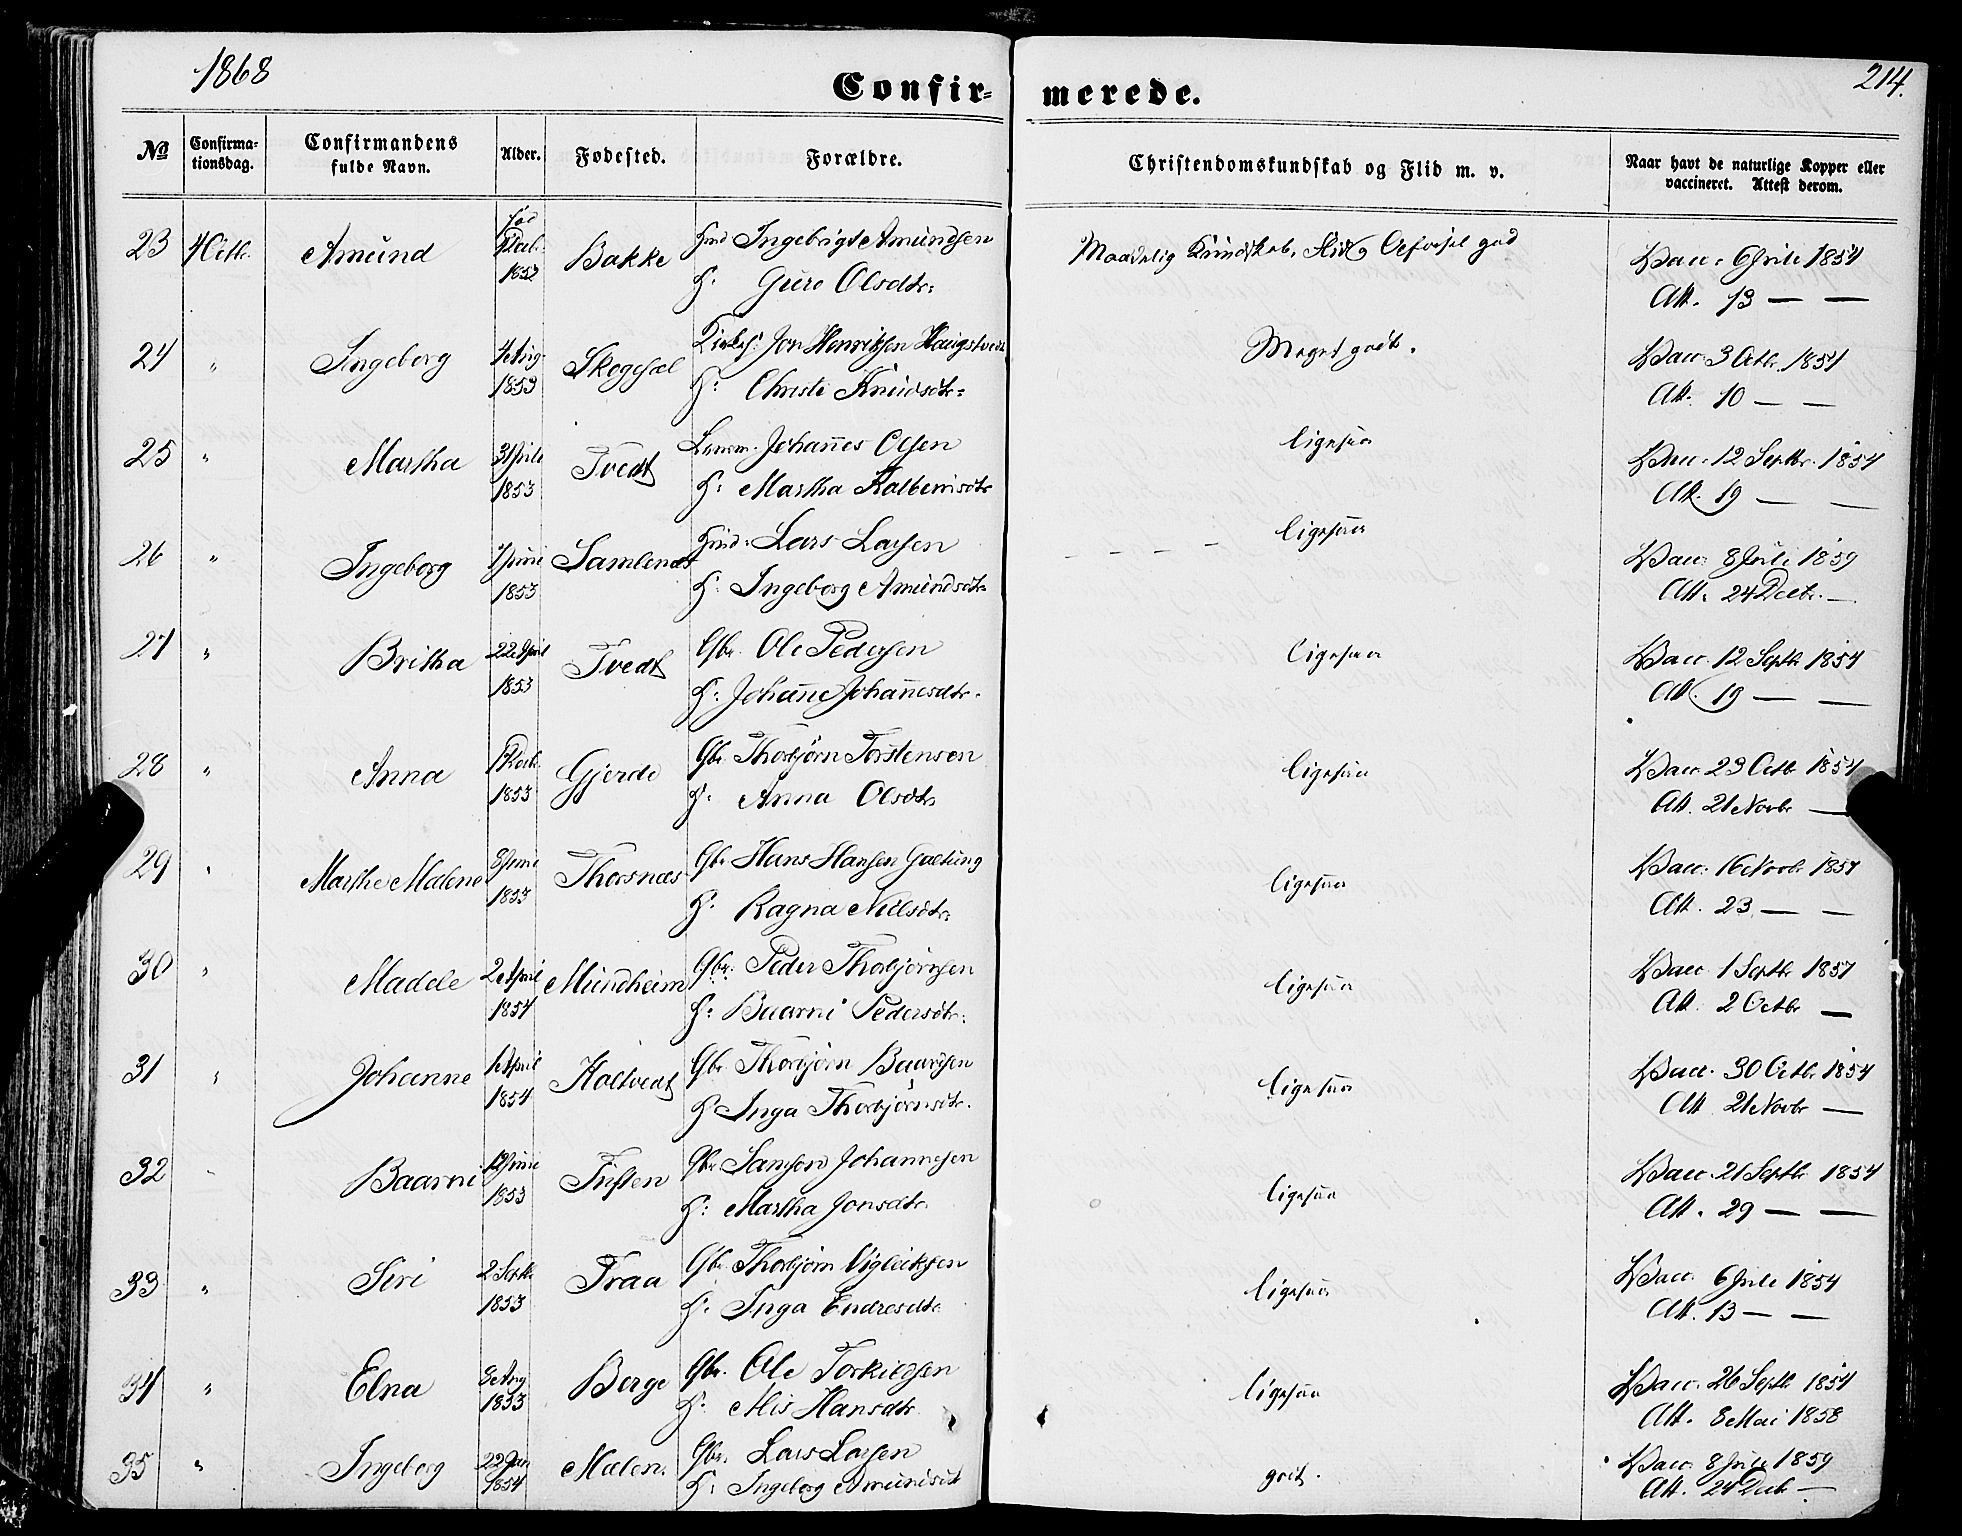 1868
214.
Confir= merede.
No
Confirma-
tionsdag.
Confirmandens
fulde Navn.
Alder.
Fødested.
Forældre.
Christendomskundskab og Flid m. v.
Naar havt de naturlige Kopper eller
vaccineret. Attest derom.
23 4 Octbr. Amund
Fød
1853
Bakke
Ingebrigt Amundsen
H: Guro Olsdtr:
Maadelig Kundskab, Flid og Opførsel god
Vacc. 6 Juli 1854
Att. 13 — —
24 " Ingeborg
4 Aug
1853
Skogesæl
Jon Henriksen Haugstvedt
H: Christi Knudsdtr:
Meget godt.
Vacc. 3 Octbr. 1854
Att. 10 — —
25 " Martha
1853
Tvedt
Lensm. Johannes Olsen
H: Martha Kolbeinsdtr
ligesaa
Vacc. 12 Septbr. 1854
Att. 19 — —
26 " Ingeborg
Juni
1853
Samlenæs
Lars Larsen
H: Ingeborg Amundsdtr
ligesaa
Vacc. 8 Juli 1859
Att. 24 Decbr. —
27 " Britha
22 April
1853
Tvedt
Gbr. Ole Pedersen
H: Johanne Johannesdtr.
ligesaa
Vacc. 12 Septbr 1854
Att. 19 — —
28 " Anna
1853
Gjerde
Gbr. Thorbjørn Torstensen
H: Anna Olsdtr
ligesaa
Vacc. 23 Octbr 1854
Att. 21 Novbr —
29 " Marthe Malene
8 Juni
1853
Thorsnæs
Gbr. Hans Hansen Gaetung
H: Ragna Nilsdtr.
ligesaa
Vacc. 16 Novbr. 1854
Att. 23 — —
30 " Madele
2 April
1854
Mundheim
Gbr. Peder Thorbjørnsen
H: Baarni Pedersdtr:
ligesaa
Vacc. 1 Septbr 1857
Att. 2 Octbr —
31 " Johanne
April
1854
Holtvedt
Gbr. Thorbjørn Baardsen
H Inga Thorbjørnsdtr.
ligesaa
Vacc. 30 Octbr. 1854
Att 21 Novbr —
32 " Baarni
Juni
1853
Tusten
Gbr Samson Johannesen
H: Martha Jonsdtr.
ligesaa
Vacc. 21 Septbr 1854
Att. 29 — —
33 " Siri
2 Septbr
1853
Traa
Gbr. Thorbjørn Vigleiksen
H: Inga Endresdtr.
ligesaa
Vacc. 6 Juli 1854
Att. 13 — —
34 " Elna
Aug
1853
Berge
Gbr. Ole Torkielsen
H: Alis Hansdtr
ligesaa
Vacc. 26 Septbr 1854
Att. 8 Mai 1858
35 " Ingeborg
22 Jan
1854
Mælen.
Gbr. Lars Larsen
H: Ingeborg Amundsdt
godt.
Vacc. 8 Juli 1859
Att. 24 Decb —